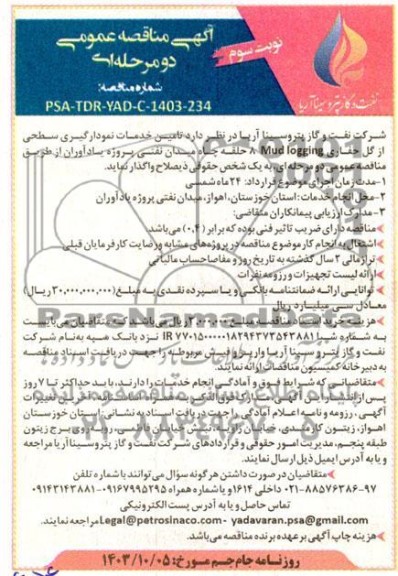 آگهی مناقصه عمومی
دو مرحله‌ای
نوبت سوم
شماره مناقصه:
PSA-TDR-YAD-C-1403-234
نفت و گاز پتروسینا آریا
شرکت نفت و گاز پتروسینا آریا در نظر دارد تامین خدمات نمودارگیری سطحی
از گل حفاری Mud logging ۸ حلقه چاه میدان نفتی پروژه یادآوران از طریق
مناقصه عمومی دو مرحله‌ای، به یک شخص حقوقی ذیصلاح واگذار نماید.
۱-مدت زمان اجرای موضوع قرارداد: ۲۴ ماه شمسی
۲-محل انجام خدمات: استان خوزستان، اهواز، میدان نفتی پروژه یادآوران
۳-مدارک ارزیابی پیمانکاران متقاضی:
مناقصه دارای ضریب تاثیر فنی بوده که برابر (۰,۴) می‌باشد.
اشتغال به انجام کار موضوع مناقصه در پروژه‌های مشابه و رضایت کارفرمایان قبلی
ترازمالی ۲ سال گذشته به تاریخ روز و مفاصاحساب مالیاتی
ارائه لیست تجهیزات و رزومه نفرات
توانایی ارائه ضمانتنامه بانکی و یا سپرده نقدی به مبلغ (۳۰,۰۰۰,۰۰۰,۰۰۰ ریال)
معادل سی میلیارد ریال
هزینه خرید اسناد مناقصه مبلغ ۳,۰۰۰,۰۰۰ ریال می‌باشد که متقاضیان می‌بایست
به شماره شبا IR نزد بانک سپه به‌نام شرکت
نفت و گاز پتروسینا آریا واریز و فیش مربوطه را جهت دریافت اسناد مناقصه
به دبیرخانه کمیسیون مناقصات ارائه نمایند.
متقاضیانی که شرایط فوق و آمادگی انجام خدمات را دارند، باید حداکثر تا ۷ روز
پس از
آگهی، رزومه و نامه اعلام آمادگی را جهت دریافت اسناد به نشانی: استان خوزستان
اهواز، زیتون کارمندی، خیابان زکریا، نبش خیابان فاطمی، روبروی برج زیتون
طبقه پنجم، مدیریت امور حقوقی و قراردادهای شرکت نفت و گاز پتروسینا آریا مراجعه
و یا به آدرس ایمیل ذیل ارسال نمایند.
متقاضیان در صورت داشتن هرگونه سؤال می‌توانند با شماره تلفن
۰۲۱-۸۸۵۷۶۳۸۶-۹۷ داخلی ۱۶۱۴ و یا شماره همراه ۰۹۱۶۷۹۹۵۲۹۵-۰۹۱۴۳۱۴۳۸۸۱
تماس حاصل و یا به آدرس پست الکترونیکی
Legal@petrosinaco.com- yadavaran.psa@gmail.com مراجعه نمایند.
هزینه چاپ آگهی بر عهده برنده مناقصه می‌باشد.
روزنامه جام جم مورخ: ۱۴۰۳/۱۰/۰۵